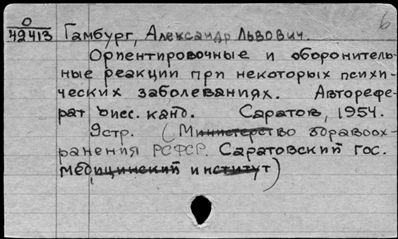 О
42413 Гамбург, Александр Львович.
б
Ориентировочные и оборонитель-
ные реакции при некоторых психи-
ческих заболеваниях. Авторефе-
рат дисс. канд. Саратов, 1954.
9стр. (Министерство здравоох-
ранения РСФСР. Саратовский гос.
медицинский институт)